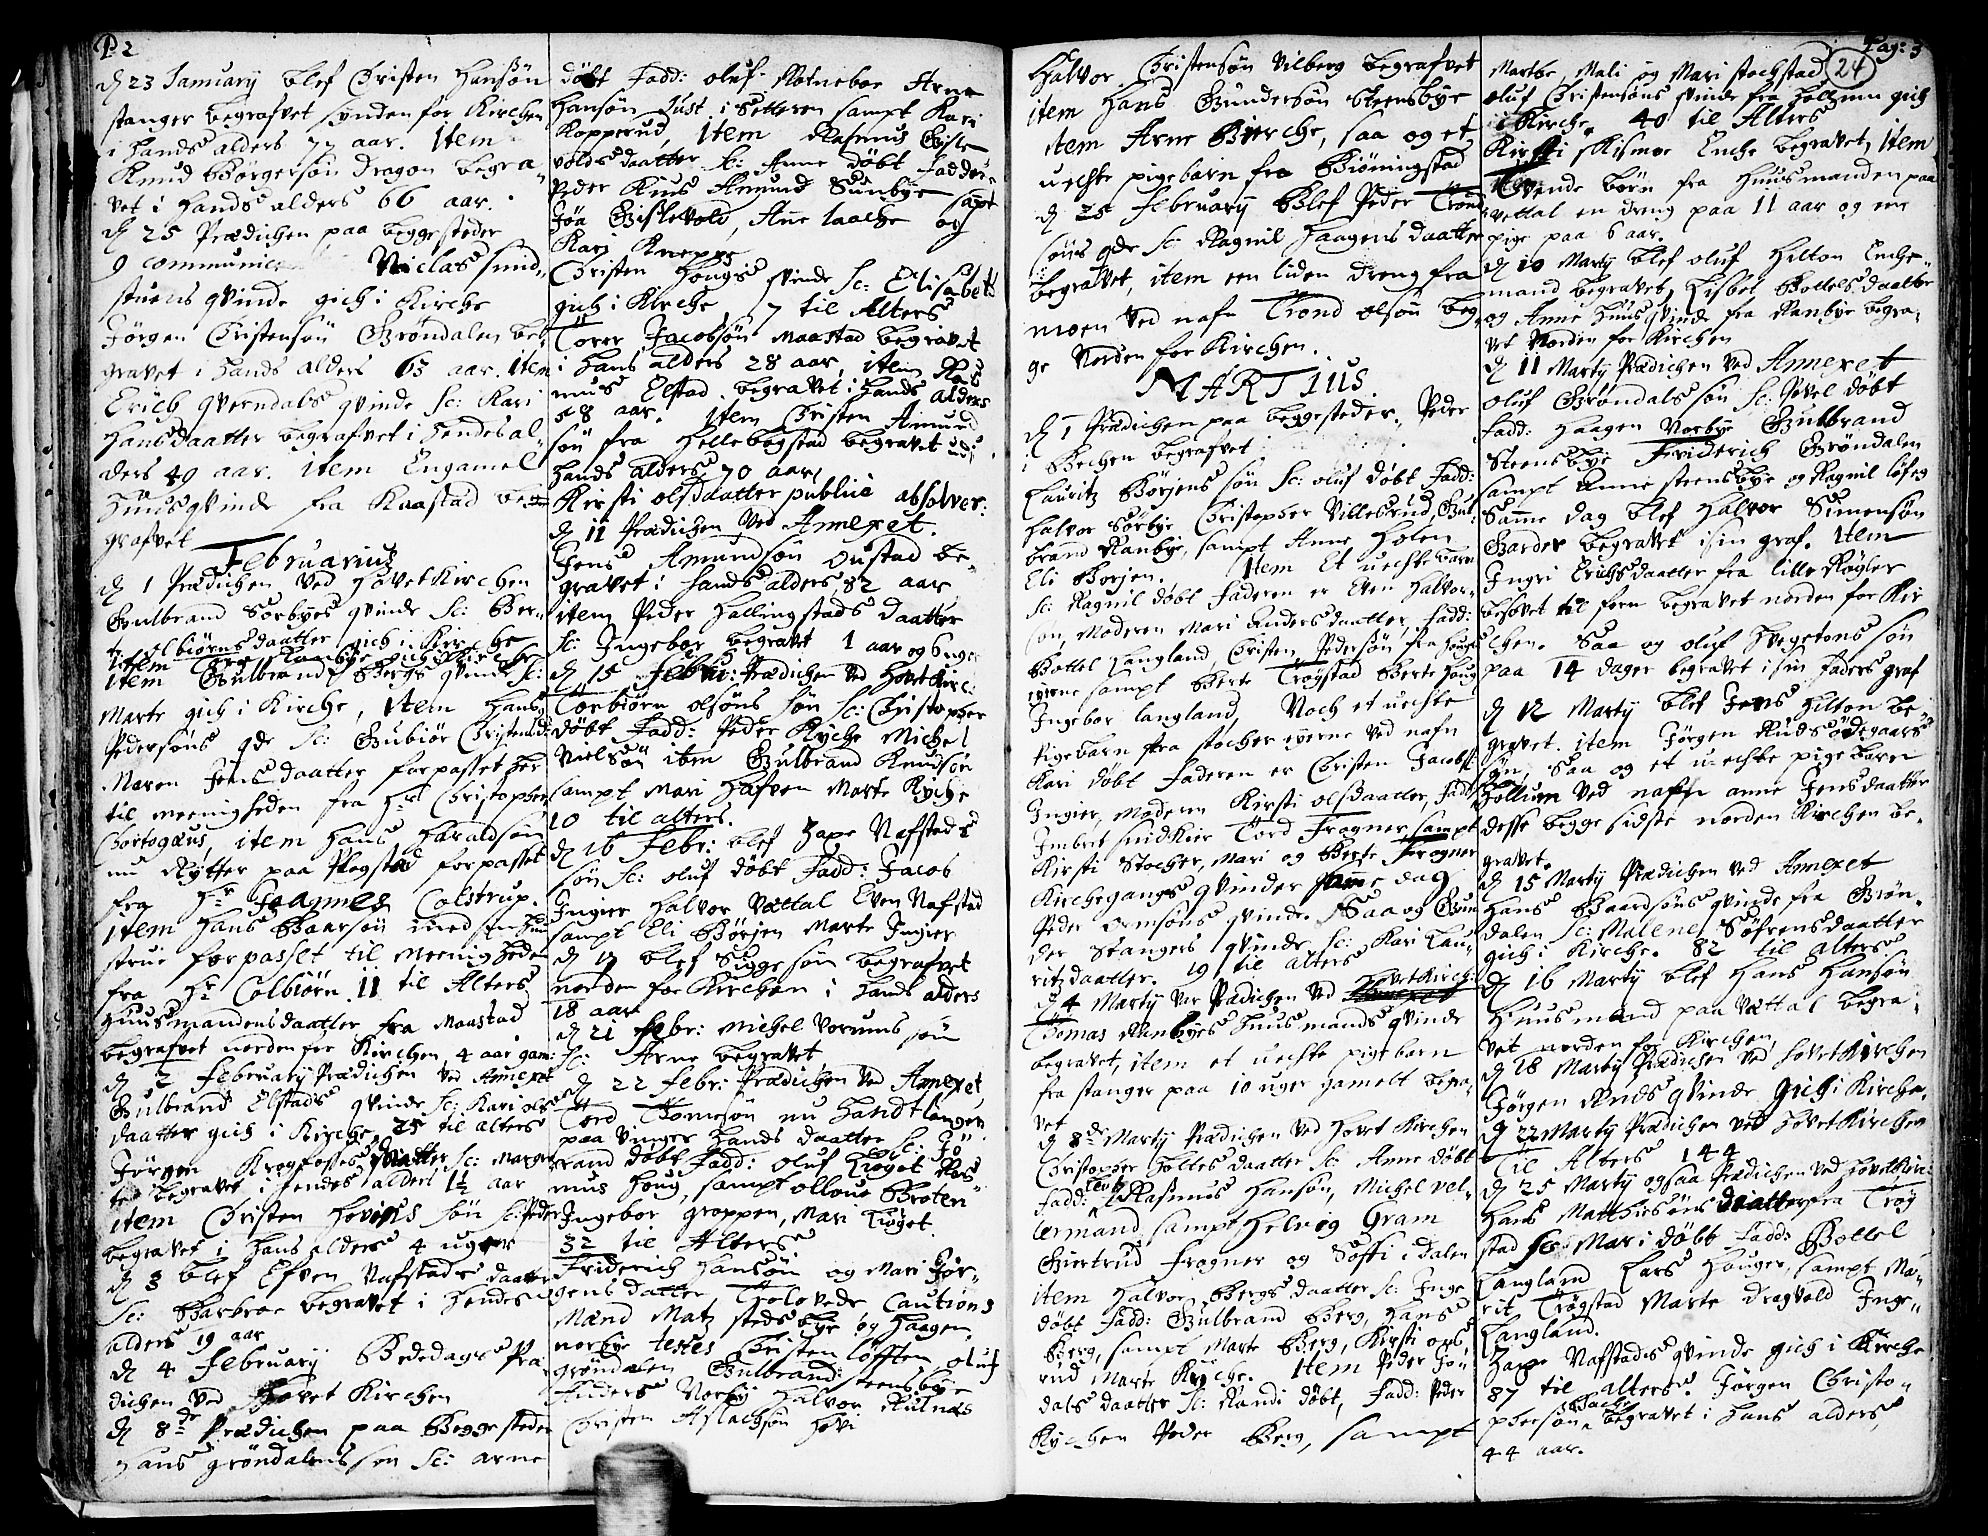 P: 2
d 23 January blef Christen Hansøn
stanger begrafvet synden for Kirchen
i hands alders 77 aar. Item
Knud Børgersøn Dragon begra-
vet i hands alders 66 aar.
d 25 Prædichen paa beggesteder
9 communic Niclas smid-
stuens qvinde gich i Kirche
Jørgen Christensøn Grøndalen be-
gravet i hands alders 65 aar. Item
Erich qverndals qvinde Sc: Kari
Hansdaatter begrafvet i hendes al-
ders 49 aar. item Engamel
huusqvinde fra Kaastad be-
grafvet
Februarius
d 1 Prædichen ved HovetKirchen
Gulbrand Sørbyes qvinde Sc: Ber-
te olbiørnsdaatter gich i Kirche
Item gich i Kirche
Item Gulbrand Bergs qvinde Sc:
Marte gich i Kirche, Item Hans
Pedersøns qde Sc: Gubiør Christens:
Maren Jensdaatter forpasset her
til meenigheden fra Hr Christopher
Hortogæus, item Hans Haraldsøn
nu Rytter paa Rogstad forpasset
fra Hr Jaannes Colstrup.
Item Hans Baarsøn med sin hu-
strue forpasset til meenigheden
fra Hr Colbiørn. 11 til Alters
Huusmandens daatter fra Maastad
begrafvet norden for Kirchen 4 aar gam:
d 2 February Prædichen ved Annexet
Gulbrand Elstads qvinde Sc: Kari ols
daatter gich i Kirche, 25 til alters
Jørgen Krogfosses daatter Sc: Margre
te begravet i hendes alders 1½ aar
item Christen Hovins søn Sc: Peder
begravet i hans alders 4 uger
d 3 blef Efven Nafstads daatter
Sc: Barbroe begravet i hendes
alders 19 aar
d 4 February Bededags Præ-
dichen ved Hovet Kirchen
d 8de Prædichen paa Begge steder
Hans grøndalens søn Sc: arne
døbt Fadd: oluf Notneboe Arne
Hansøn Just i Setteren sampt Kari
Kopperud, Item Rasmus Gisle
volds daatter Sc: Anne døbt Fadder:
Peder Kius Amund Sunbye sapt
Joa Gislevold, Ane laache og
Kari Knepper
Christen Hougs qvinde Sc: Elisabet
gich i Kirche 7 til Alters
Torer Jacobsøn Maastad begravet
i hans alders 28 aar, item Ras
mus Elstad begravet i hands alders
58 aar. Item Christen Amund
søn fra Hellebogstad begravet udi
hands alders 70 aar
Kirsti olsdaatter publicè absolver:
d 11 Prædichen ved Annexet.
Jens Amundsøn oustad be-
gravet i hands alders 82 aar
item Peder Hallingstads daatter
Sc: Ingebor begravet 1 aar og 6 uger
d 15 Febru: Prædichen ved HovetKirc:
Torbiørn olsøns søn Sc: Christopher
døbt Fadd: Peder Ryche Michel
Nielsøn item Gulbrand Knudsøn
sampt Mari Hafven Marte Ryche
10 til alters.
d 16 Febr: blef Hage Nafstads
søn Sc: oluf døbt Fadd: Jacob
Ingier Halvor Vættal Even Nafstad
sampt Eli Børjen Marte Ingier
d 17 blef Sigge søn begrafvet
norden for Kirchen i hands alders
18 aar
d 21 Febr: Michel Vorums søn
Sc: Arne begravet
d 22 Febr: Prædichen ved Annexet
Tord Tomesøn nu Handtlanger
paa Vinger hands daatter Sc: Jø-
rand døbt Fadd: oluf Trøget Ras-
mus Houg, sampt olloue Broten
Ingebor groppen, Mari Trøget.
32 til Alters
Friderich Hansøn og Mari Jør-
gens datter Trolovede Cautions
Mænd Matz stedsbye og Haagen
norbye testes Christen løfften oluf
grøndalen Gulbrand Steensbye
Anders Norby Halvor Rulnæs
Christen Aslachsøn Hovi
Halvor Christensøn Vilberg begrafvet
item Hans Gundersøn Steensbye
item Arne Bierche, saa og et
uechte pigebarn fra Biørningstad
d 25 February Blef Peder Trond
søns qde Sc: Ragnil Haagensdaatter
begravet, item een liden dreng fra
moen ved nafn Trond olsøn beg-
ge Norden for Kirchen.
MARTIUS.
d 1 Prædichen paa beggesteder. Peder
i Bechen begrafvet
Lauritz Børjens søn Sc: oluf døbt Fadd:
Halvor Sørbye Christopher Villebrud, Gul-
brand Ranbye, sampt Anne Holen
Eli Borjen. Item Et uechte barn
Sc: Ragnil døbt Faderen er Even Halvor-
søn, Moderen Mari Andersdaatter, Fadd:
Bottel Langland, Christen Pedersøn fra Houge
eyerne sampt Berte Trøgstad Berte Houg
Ingebor langland, Noch et uechte
Pigebarn fra stocher eyerne ved nafn
Kari døbt Faderen er Christen Jacobss:
Ingier, Moderen Kirsti olsdaatter, Fadd:
Imbret smidkier Tord Frogner sampt
Kirsti Stocher, Mari og Berte Frogner
Kirchegangs qvinder samme dag
Peder ormsøns qvinde. Saa og Gun
der Stangers qvinde Sc: Kari Lau-
ritzdaatter. 19 til alters
d 4 Martij var Prædichen ved HovetKirch:
Thomas Ranbyes huusmands qvinde
begravet, item et uechte pigebarn
fra stanger paa 10 uger gamelt begra-
vet
d 8de Martij Prædichen ved Hovet Kirchen
Christopher Holtes daatter Sc: Anne døbt
Fadd: Leut Rasmus Hansøn, Michel vel-
lermand sampt Helvig Gram
Giertrud Frogner og Søffi i Dalen
item Halvor Bergs daatter Sc: Inge
døbt Fadd: Gulbrand Berg, Hans
Berg, sampt Marte Berg, Kirsti ops-
rud Marte Ryche. Item Peder Jon
dals daatter Sc: Randi døbt, Fadd: Peder
Rychen Peder Berg, sampt
Pag: 3
24
Marthe, Mali og Mari stochstad
oluf Christensøns qvinde fra Holtum gich
i Kirche, 40 til Alters
Kirsti Kismoe Enche begravet, Item
Tvende børn fra huusmanden paa
vettal en dreng paa 11 aar og een
pige paa 6 aar.
d 10 Martij blef oluf Hilton Enche-
mand begravet, Lisbet Bottels daatter
og Anne huusqvinde fra Ranbye begra-
vet Norden for Kirchen
d 11 Martij Prædichen ved Annexet
oluf Grøndals søn Sc: Povel døbt
Fadd: Haagen Norbye Gulbrand
Steensbye Friderich Grøndalen
sampt Anne steensbye og Ragnil løfen
Samme dag blef Halvor Simensøn
Garder begravet i sin graf. Item
Ingri Erichsdaatter fra lille Røgler
besovet til forn begravet norden for Kir
chen. Saa og oluf Hvegetons søn
paa 14 dager begravet i sin faders graf
d 12 Martij blef Jens Hilton be-
gravet. item Jørgen Ruds ødegaars
søn, Saa og et uechte pigebaren
Hollum ved nafn anne Jensdaatter
desse begge sidste norden Kirchen be-
gravet.
d 15 Martij Prædichen ved Annexet
Hans Baardsøns qvinde fra Grøn-
dalen Sc: Malene Søfrensdaatter
gich i Kirche. 82 til alters
d 16 Martij blef Hans Hansøn
Huusmand paa Vættal begra-
vet norden for Kirchen
d 18 Martij Prædichen ved HovetKirchen
Jørgen Ruds qvinde gich i Kirche.
d 22 Martij Prædichen ved HovetKirchen
Til Alters 144
d 25 Martij ogsaa Prædichen ved HovetKir:
Hans Matthisøns daatter fra Trøg
stad Sc: Mari døbt Fadd: Bottel
Langland Lars Hauger, sampt Ma-
rit Trøgstad Marte Dragvold Inge-
Langland.
Hage Nafstads qvinde gich i Kirche
87 til alters. Jørgen Christo-
phersøn Bache begravet i hans alders
44 aar.